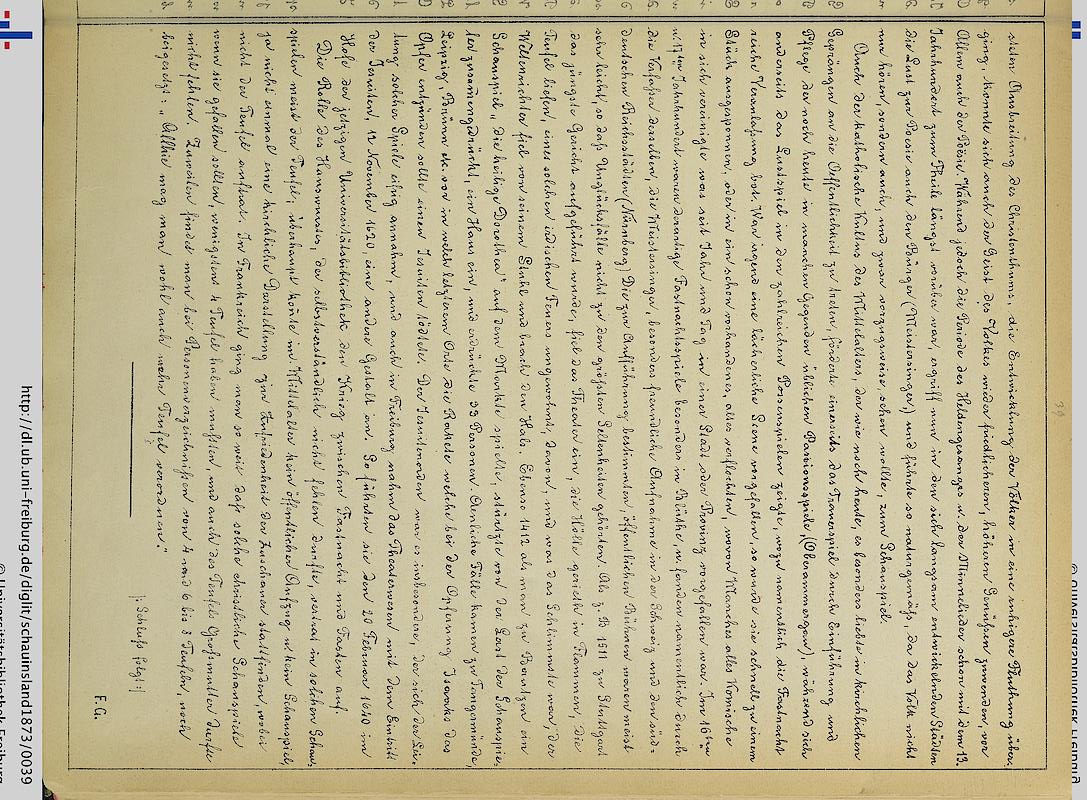 39
steten Ausbreitung des Christenthums, die Entwicklung der Völker in eine ruhigere Fluthung über,
ging. konnte sich auch der Geist des Volkes wieder friedlicheren, höheren Genüssen zuwenden, vor
Allem auch der Poësie. Während jedoch die Periode des Heldengesanges u. der Minnelieder schon mit dem 13.
Jahrhundert zum Theile längst vorüber war, ergriff nun in den sich langsam entwickelnden Städten
die Lust zur Poesie auch den Bürger (Meistersinger) und führte so naturgemäß, da das Volk nicht
nur hören, sondern auch, und zwar vorzugsweise, sehen wollte, zum Schauspiel.
Auch der katholische Kultus des Mittelalters, der wie noch heute, es besonders liebte in kirchlichen
Geprängen an die Oeffentlichkeit zu treten, förderte einerseits das Trauerspiel durch Einführung und
Pflege der noch heute in manchen Gegenden üblichen Passionsspiele, (Oberammergau), während sich
anderseits das Lustspiel in den zahlreichen Possenspielen zeigte, wozu namentlich die Fastnacht
reiche Veranlaßung bot. War irgend eine lächerliche Scene vorgefallen, so wurde sie schnell zu einem
Stück ausgesponnen, oder in ein schon vorhandenes, altes verflochten, wovon Manches alles Komische
in sich vereinigte was seit Jahr und Tag in einer Stadt oder Provinz vorgefallen war. Im 16ten
u. 17ten Jahrhundert waren derartige Fastnachtsspiele besonders in Blüthe u. fanden namentlich durch
die Verfasser derselben, die Meistersinger, besonders freundliche Aufnahme in der Schweiz und den süd,
deutschen Reichsstädten (Nürnberg). Die zur Aufführung bestimmten, öffentlichen Bühnen waren meist
sehr leicht, so daß Unglücksfälle nicht zu den größten Seltenheiten gehörten. Als z. B. 1511 zu Stuttgart
das jüngste Gericht aufgeführt wurde, fiel das Theater ein, die Hölle gerieth in Flammen, die
Teufel liefen, eines solchen irdischen Feuers ungewohnt, davon, und was das Schlimmste war, der
Weltenrichter fiel von seinem Stuhl und brach den Hals. Ebenso 1412 als man zu Bautzen ein
Schauspiel „die heilige Dorothea" auf dem Markte spielte, stürzte von der Last der Schauspie,
ler zusamengedrückt, ein Haus ein, und erdrückte 33 Personen. Aenliche Fälle kamen zu Tangermünde,
Leipzig, Brünn etc. vor in welch letzterem Orte die Rakete welche bei der Opferung Isaaks das
Opfer entzünden sollte einen Jesuiten tödtete. Der Jesuitenorden war es insbesondere, der sich der Lei,
tung solcher Spiele eifrig annahm, und auch in Freiburg nahm das Theaterwesen mit dem Eintritt
der Jesuiten, 12 November 1620, eine andere Gestalt an. So führten sie den 20 Februar 1640 im
Hofe der jetzigen Universitätsbibliothek den Krieg zwischen Fastnacht und Fasten auf.
Die Rolle des Hanswurstes, der selbstverständlich nicht fehlen durfte, vertrat in solchen Schau,
spielen meist der Teufel; überhaupt konte im Mittelalter kein öffentlicher Aufzug u. kein Schauspiel,
ja nicht einmal eine kirchliche Darstellung zur Zufriedenheit der Zuschauer stattfinden, wobei
nicht der Teufel auftrat. In Frankreich ging man so weit daß solche christliche Schauspiele
wenn sie gefallen sollten, wenigstens 4 Teufel haben mußten, und auch des Teufels Großmutter durfte
nicht fehlen. Zuweilen findet man bei Personenverzeichnißen von 4 und 6 bis 8 Teufeln, noch
beigesetzt: „Allhie mag man wohl auch mehr Teufel verordnen."
|: Schluß folgt :|
F. G.
http://dl.ub.uni-freiburg.de/diglit/schauinsland1873/0039
© Universitätsbibliothek Freiburg